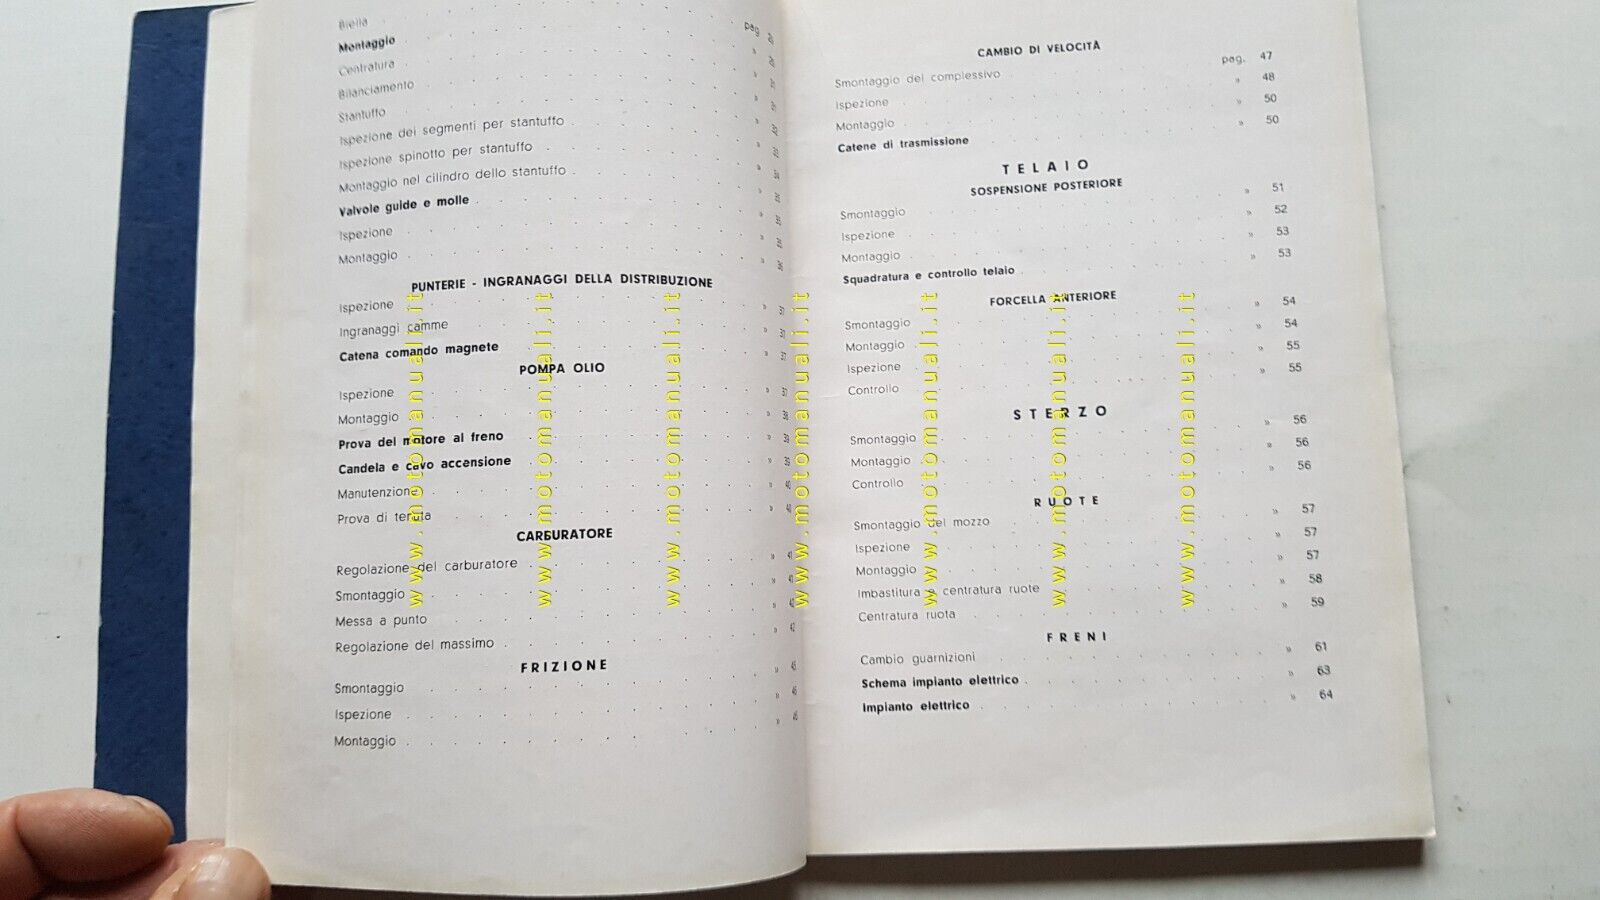 Biella
Montaggio
Centratura
Bilanciamento
Stantuffo
Ispezione dei segmenti per stantuffo
Ispezione spinotto per stantuffo
Montaggio nel cilindro dello stantuffo
Valvole guide e molle
Ispezione
Montaggio
PUNTERIE - INGRANAGGI DELLA DISTRIBUZIONE
Ispezione
Ingranaggi camme
Catena comando magnete » 37
POMPA OLIO
Ispezione » 37
Montaggio » 38
Prova del motore al freno » 39
Candela e cavo accensione » 39
Manutenzione » 40
Prova di tenuta » 40
CARBURATORE
Regolazione del carburatore » 41
Smontaggio » 41
Messa a punto » 42
Regolazione del massimo » 42
FRIZIONE
Smontaggio » 45
Ispezione » 46
Montaggio » 46
CAMBIO DI VELOCITÀ
Smontaggio del complessivo pag. 47
Ispezione » 48
Montaggio » 50
Catene di trasmissione » 50
TELAIO
SOSPENSIONE POSTERIORE
Smontaggio » 51
Ispezione » 52
Montaggio » 53
Squadratura e controllo telaio » 53
FORCELLA ANTERIORE
Smontaggio » 54
Montaggio » 54
Ispezione » 55
Controllo » 55
STERZO
Smontaggio » 56
Montaggio » 56
Controllo » 56
RUOTE
Smontaggio del mozzo » 57
Ispezione » 57
Montaggio » 57
Imbastitura e centratura ruote » 58
Centratura ruota » 59
FRENI
Cambio guarnizioni » 61
Schema impianto elettrico » 63
Impianto elettrico » 64
www.motomanuali.it
www.motomanuali.it
www.motomanuali.it
www.motomanuali.it
www.motomanuali.it
www.motomanuali.it
www.motomanuali.it